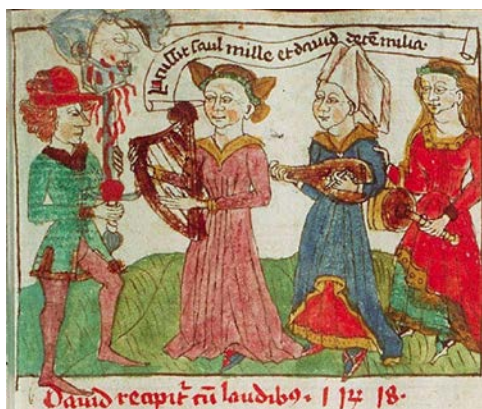 Percussit saul mille et david decem milia.
David recipit͛ cū laudibꝯ. 1 18.